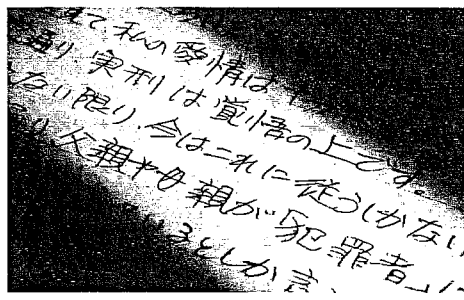 えて私の愛情は
通り実刑は覚悟の上です。
ない限り、今はこれに従うしかない
父親や母親が「犯罪者」に
るとしか言